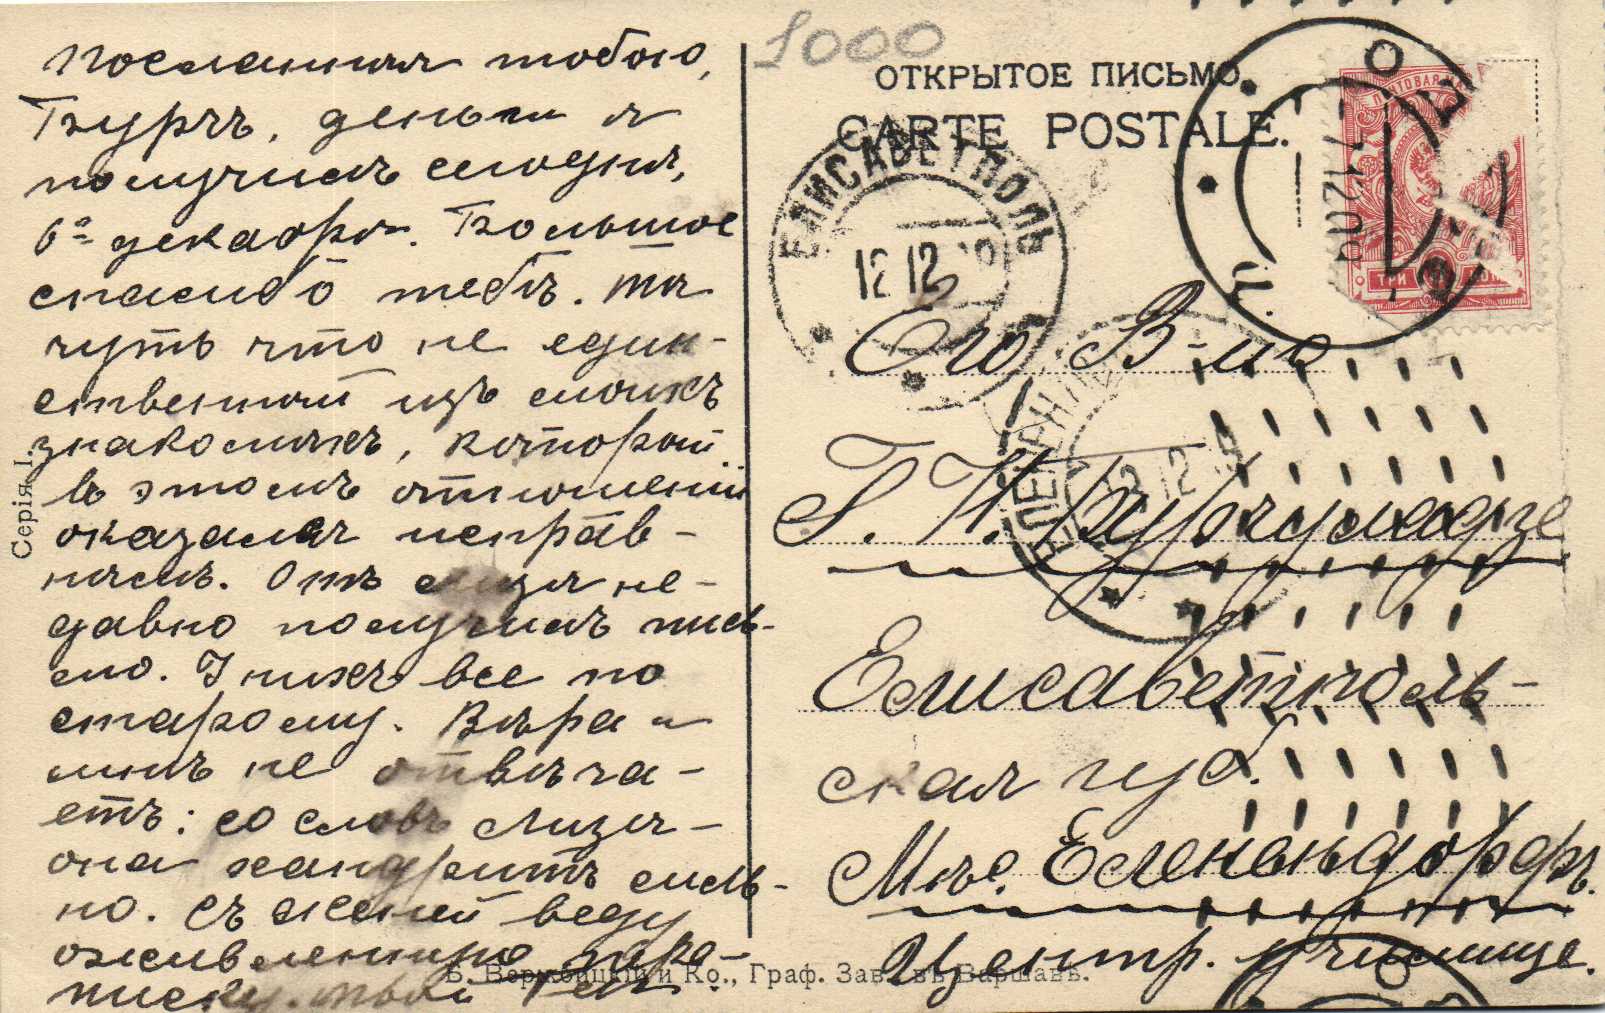 Посланныя тобою,
Бурчъ, деньги я
получилъ сегодня,
6го декабря. Большое
спасибо тебѣ. Ты
чуть что не един-
ственный изъ моихъ
знакомыхъ, который
въ этомъ отношеніи
оказался исправ-
нымъ. Отъ Лизы не-
давно получилъ пись-
мо. У нихъ все по
старому. Вѣра и
мнѣ не отвѣча-
етъ: со словъ Лизы-
она хандритъ силь-
но. Съ женей веду
оживленную пере-
писку. Твой
Серія I.
1000
ОТКРЫТОЕ ПИСЬМО.
CARTE POSTALE.
ЕЛИСАВЕТПОЛЬ
12 12
7 12 09
ТРИ
Его В-ію
Г. Н. Бурчуладзе
Елисаветполь-
ская губ.
Мѣс. Еленендорфъ.
Центр. училище.
Б. Вержбицкій и Ко., Граф. Зав. въ Варшавѣ.